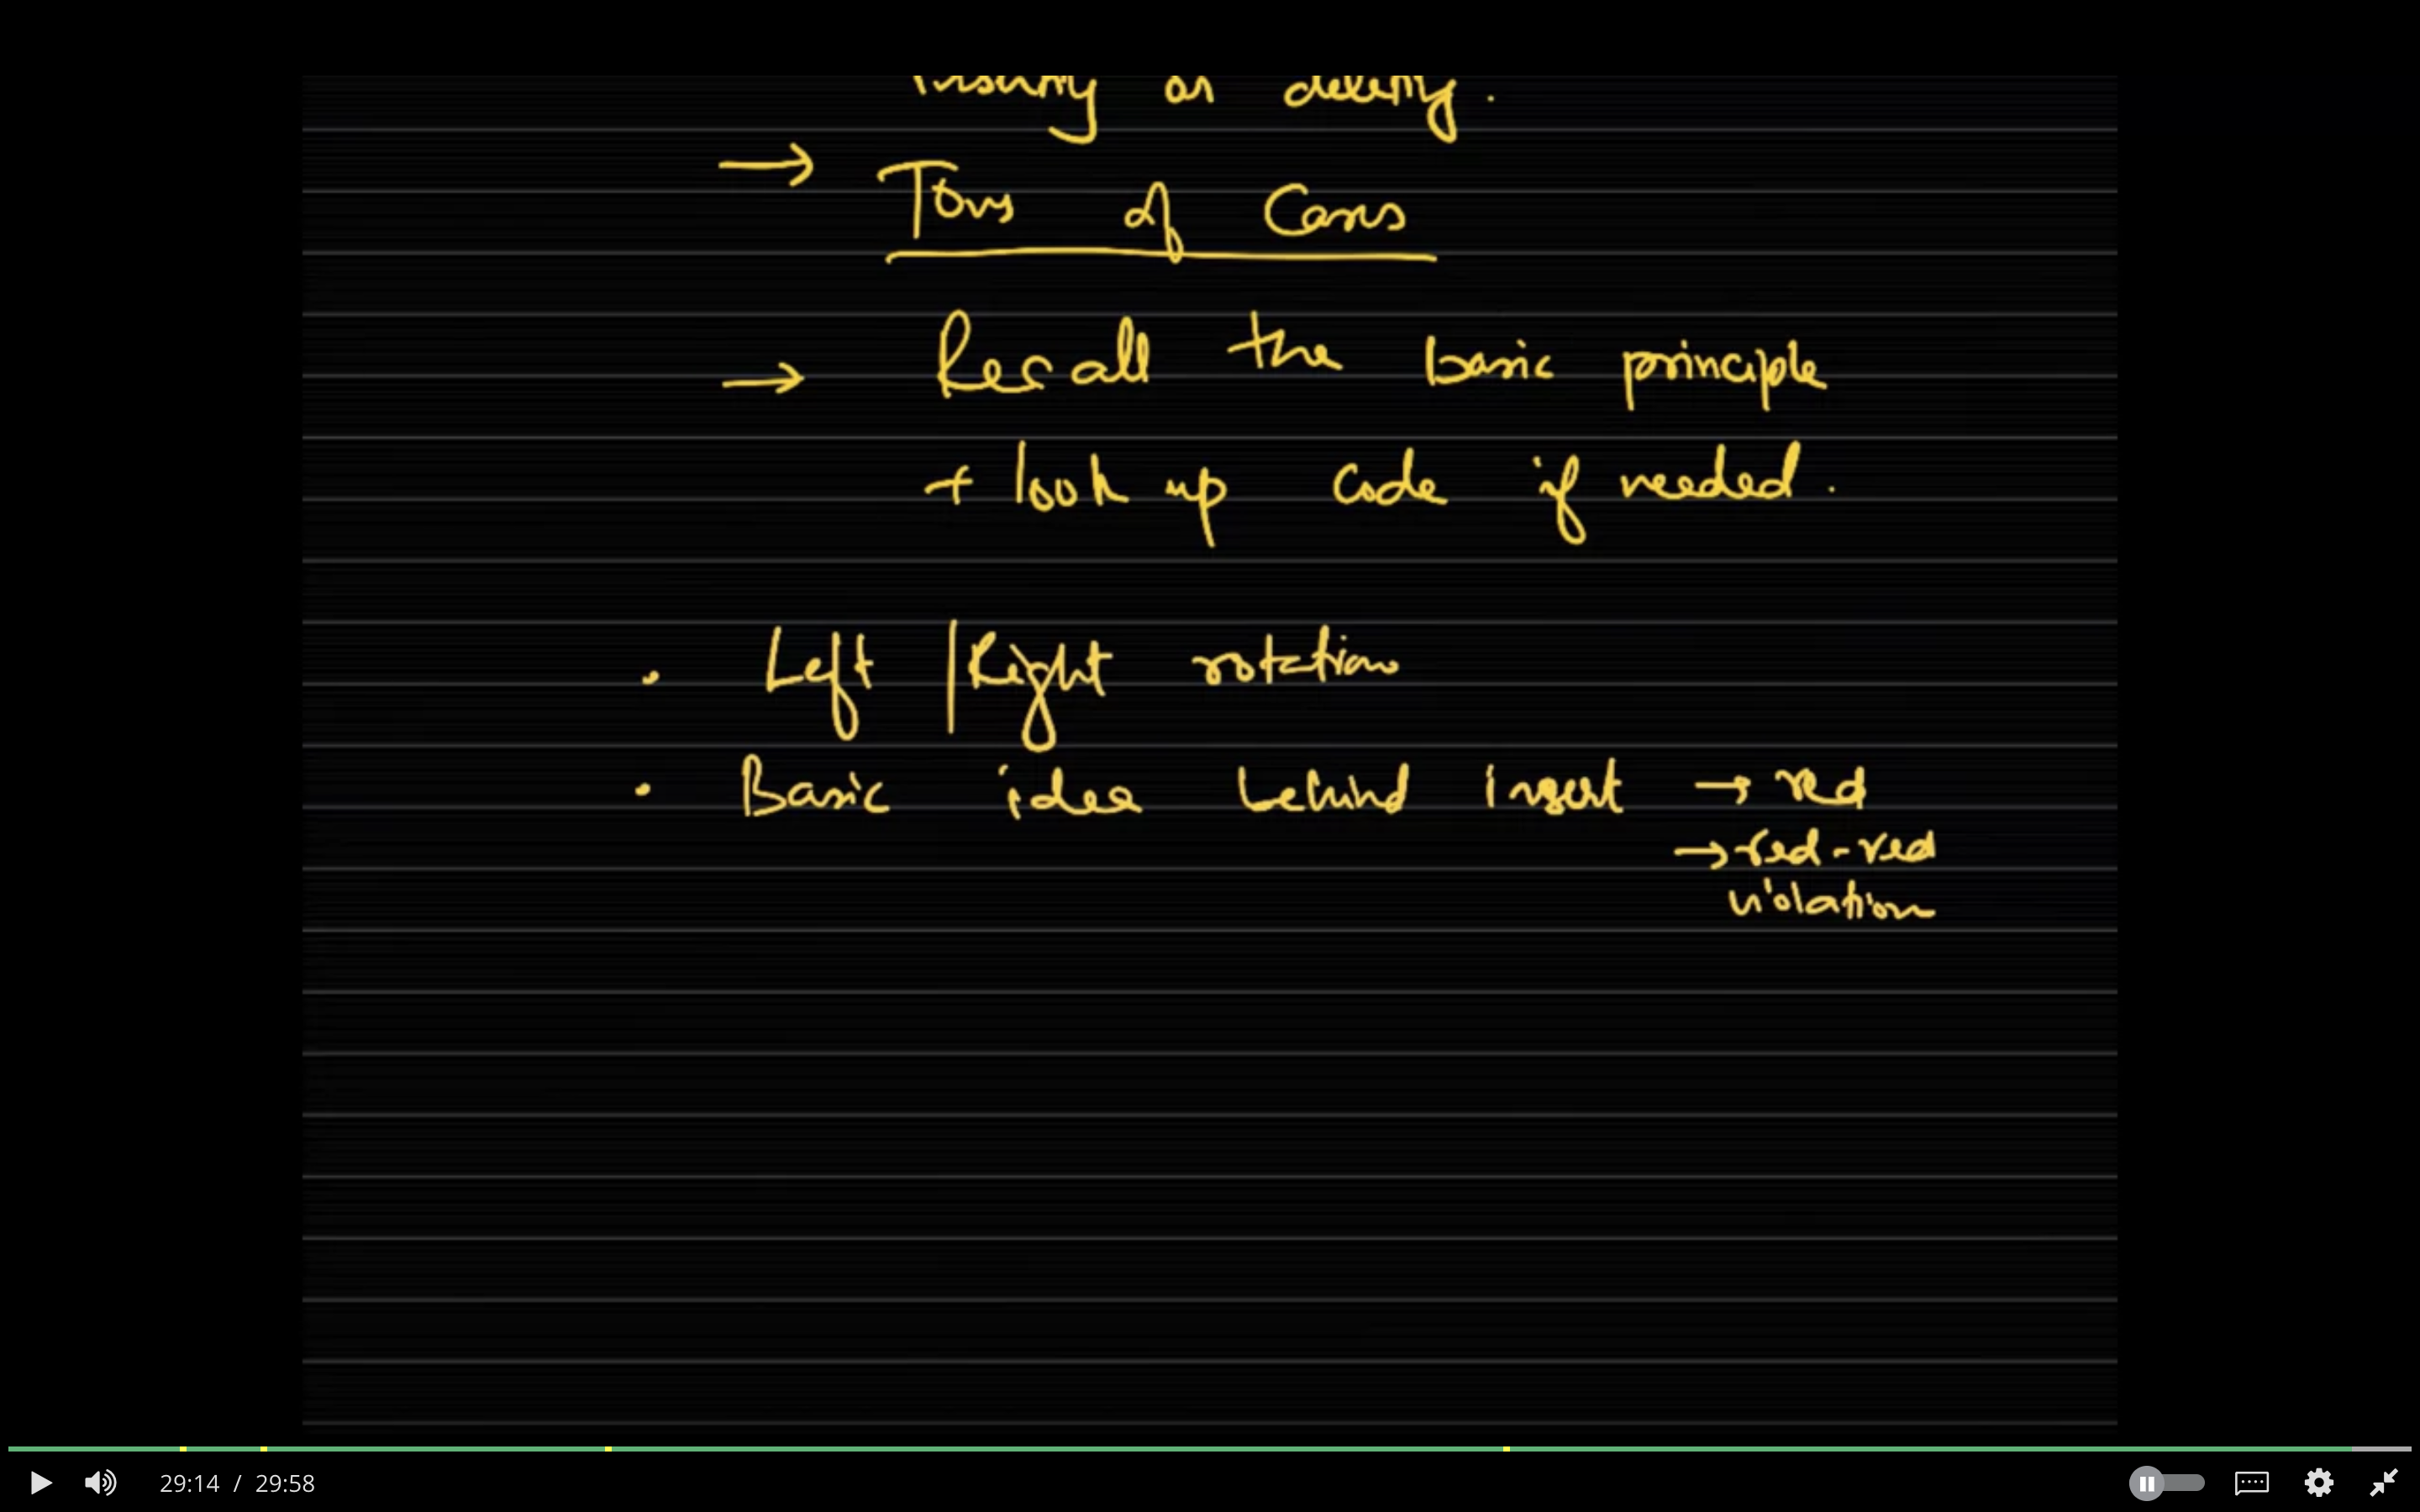 or
→ Tons of Cases
→ Recall the basic principle
+ look up code if needed.
• Left / Right rotations
• Basic idea behind insert → red
→ red-red
violation
29:14 / 29:58